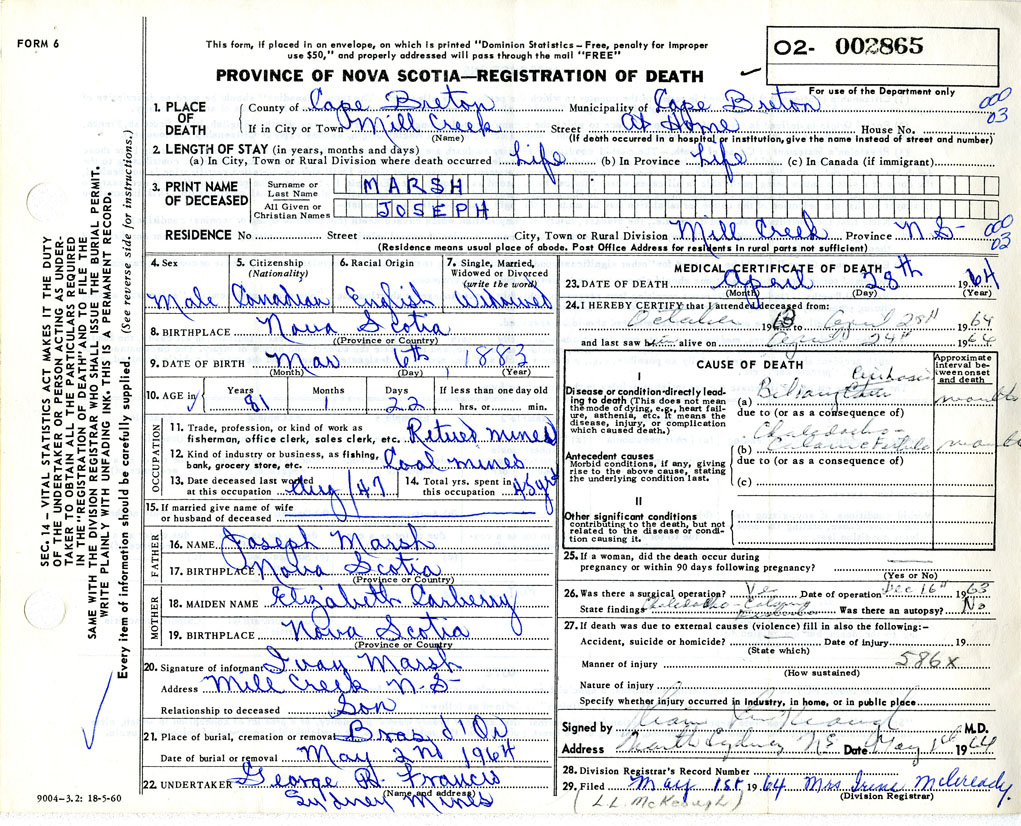 FORM 6
This form, if placed in an envelope, on which is printed "Dominion Statistics – Free, penalty for improper
use $50," and properly addressed will pass through the mail "FREE"
02- 002865
PROVINCE OF NOVA SCOTIA—REGISTRATION OF DEATH
For use of the Department only
1. PLACE OF DEATH
County of Cape Breton Municipality of Cape Breton 000 03
If in City or Town Mill Creek (Name) Street At Home House No.
(If death occurred in a hospital or institution, give the name instead of street and number)
2. LENGTH OF STAY (in years, months and days)
(a) In City, Town or Rural Division where death occurred Life (b) In Province Life (c) In Canada (if immigrant)
3. PRINT NAME OF DECEASED
Surname or Last Name MARSH
All Given or Christian Names JOSEPH
RESIDENCE No Street City, Town or Rural Division Mill Creek Province N S- 000 03
(Residence means usual place of abode. Post Office Address for residents in rural parts not sufficient)
4. Sex Male
5. Citizenship (Nationality) Canadian
6. Racial Origin English
7. Single, Married, Widowed or Divorced (write the word) Widower
8. BIRTHPLACE Nova Scotia
(Province or Country)
9. DATE OF BIRTH Mar 6th, 1883
(Month) (Day) (Year)
10. AGE in Years 81 Months 1 Days 22 If less than one day old hrs. or min.
OCCUPATION
11. Trade, profession, or kind of work as
fisherman, office clerk, sales clerk, etc. Retired miner
12. Kind of industry or business, as fishing,
bank, grocery store, etc. Coal mines
13. Date deceased last worked at this occupation Aug/47
14. Total yrs. spent in this occupation 45 yrs
15. If married give name of wife
or husband of deceased
FATHER
16. NAME Joseph Marsh
17. BIRTHPLACE Nova Scotia
(Province or Country)
MOTHER
18. MAIDEN NAME Elizabeth Carberry
19. BIRTHPLACE Nova Scotia
(Province or Country
20. Signature of informant Ivay Marsh
Address Mill Creek N.S-
Relationship to deceased Son
21. Place of burial, cremation or removal Bras d'Or
Date of burial or removal May 2nd 1964
22. UNDERTAKER George H. Francis
(Name and address)
Sydney Mines
9004–3.2: 18-5-60
MEDICAL CERTIFICATE OF DEATH
23. DATE OF DEATH April 28th 1964
(Month) (Day) (Year)
24. I HEREBY CERTIFY that I attended deceased from:
October 1963 to April 28th 1964
and last saw him alive on April 24th 1964
CAUSE OF DEATH
Approximate interval between onset and death
I
Disease or condition directly leading to death (This does not mean the mode of dying, e.g., heart failure, asthenia, etc. It means the disease, injury, or complication which caused death.)
(a) Biliary Cirrhosis months
due to (or as a consequence of)
Antecedent causes
Morbid conditions, if any, giving rise to the above cause, stating the underlying condition last.
(b) Fistula months
due to (or as a consequence of)
(c)
II
Other significant conditions
contributing to the death, but not related to the disease or condition causing it.
25. If a woman, did the death occur during
pregnancy or within 90 days following pregnancy?
(Yes or No)
26. Was there a surgical operation? Yes Date of operation Dec 16th 1963
State findings Was there an autopsy? No
27. If death was due to external causes (violence) fill in also the following:-
Accident, suicide or homicide? Date of injury 19
(State which)
Manner of injury 586x
(How sustained)
Nature of injury
Specify whether injury occurred in Industry, in home, or in public place
Signed by M.D.
Address North Sydney N S Date May 1st 1964
28. Division Registrar's Record Number
29. Filed May 1st 1964 Mrs Irene McCready.
(Division Registrar)
(L L McKeough)
SEC. 14 – VITAL STATISTICS ACT MAKES IT THE DUTY
OF THE UNDERTAKER OR PERSON ACTING AS UNDER-
TAKER TO OBTAIN ALL THE PARTICULARS REQUIRED
IN THE "REGISTRATION OF DEATH" AND TO FILE THE
SAME WITH THE DIVISION REGISTRAR WHO SHALL ISSUE THE BURIAL PERMIT.
WRITE PLAINLY WITH UNFADING INK. THIS IS A PERMANENT RECORD.
Every item of information should be carefully supplied. (See reverse side for instructions.)